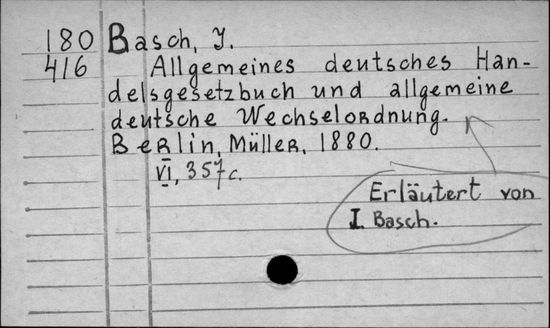 180 Basch, J.
416 Allgemeines deutsches Han-
delsgesetzbuch und allgemeine
deutsche Wechselordnung.
Berlin, Müller, 1880.
VI, 357 c.
Erläutert von
I. Basch.